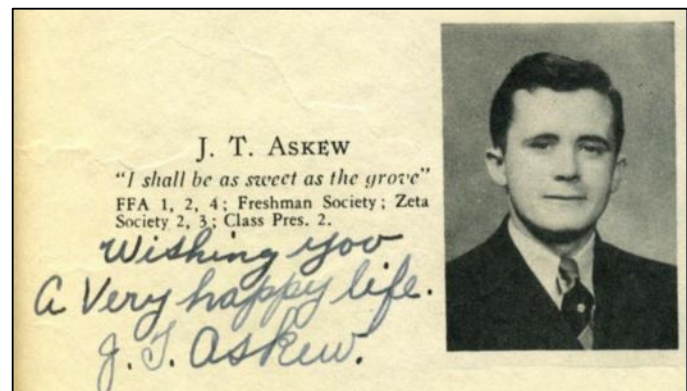 J. T. ASKEW
"I shall be as sweet as the grove"
FFA 1, 2, 4; Freshman Society; Zeta
Society 2, 3; Class Pres. 2.
Wishing you
A Very happy life.
J. T. Askew.